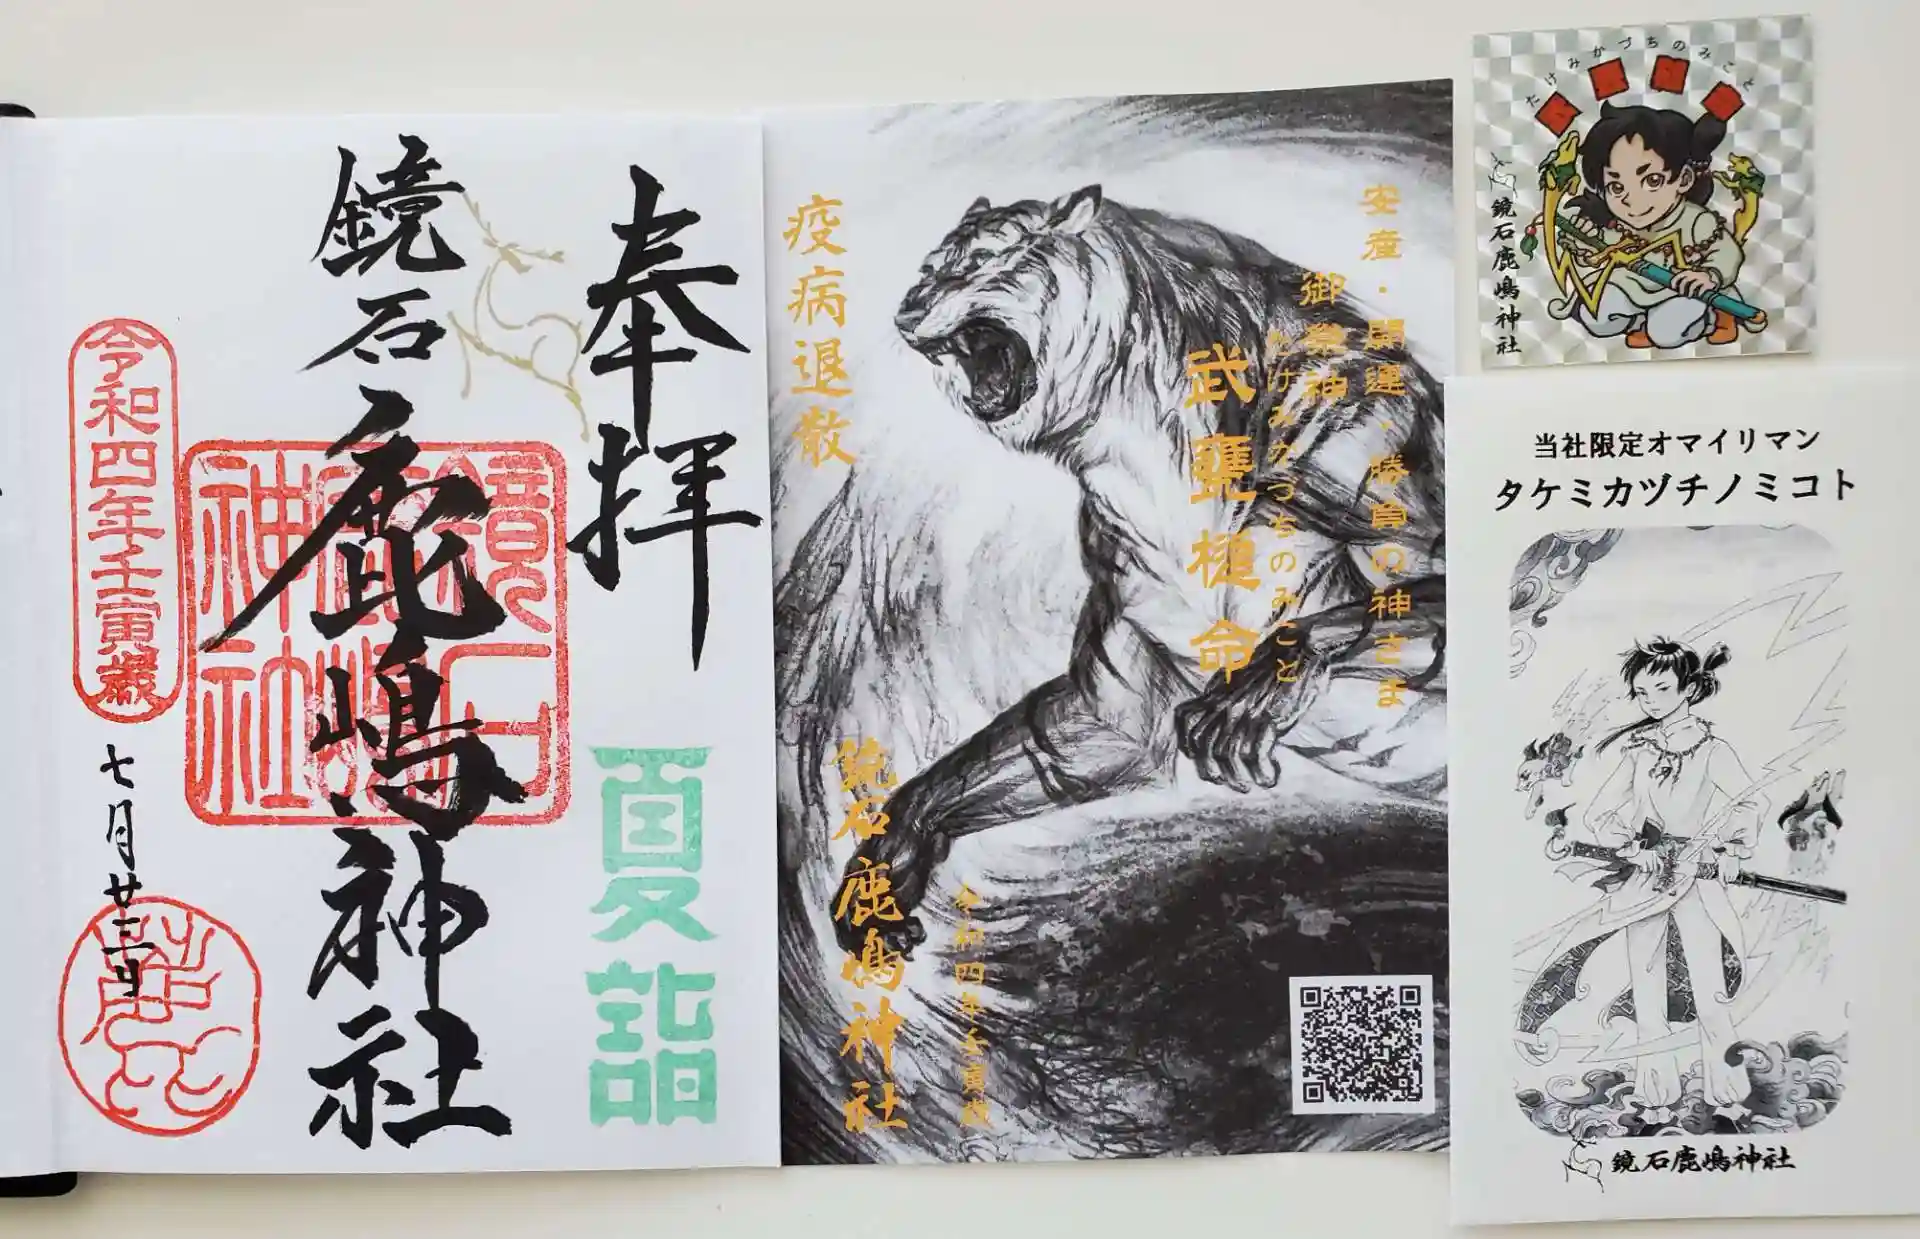 奉拝
夏詣
鏡石鹿嶋神社
鏡石
鹿嶋
神社
令和四年壬寅歳
七月廿三日
安産・開運・勝負の神さま
御祭神
たけみかづちのみこと
武甕槌命
疫病退散
鏡石鹿嶋神社
令和四年壬寅歳
たけみかづちのみこと
鏡石鹿嶋神社
当社限定オマイリマン
タケミカヅチノミコト
鏡石鹿嶋神社